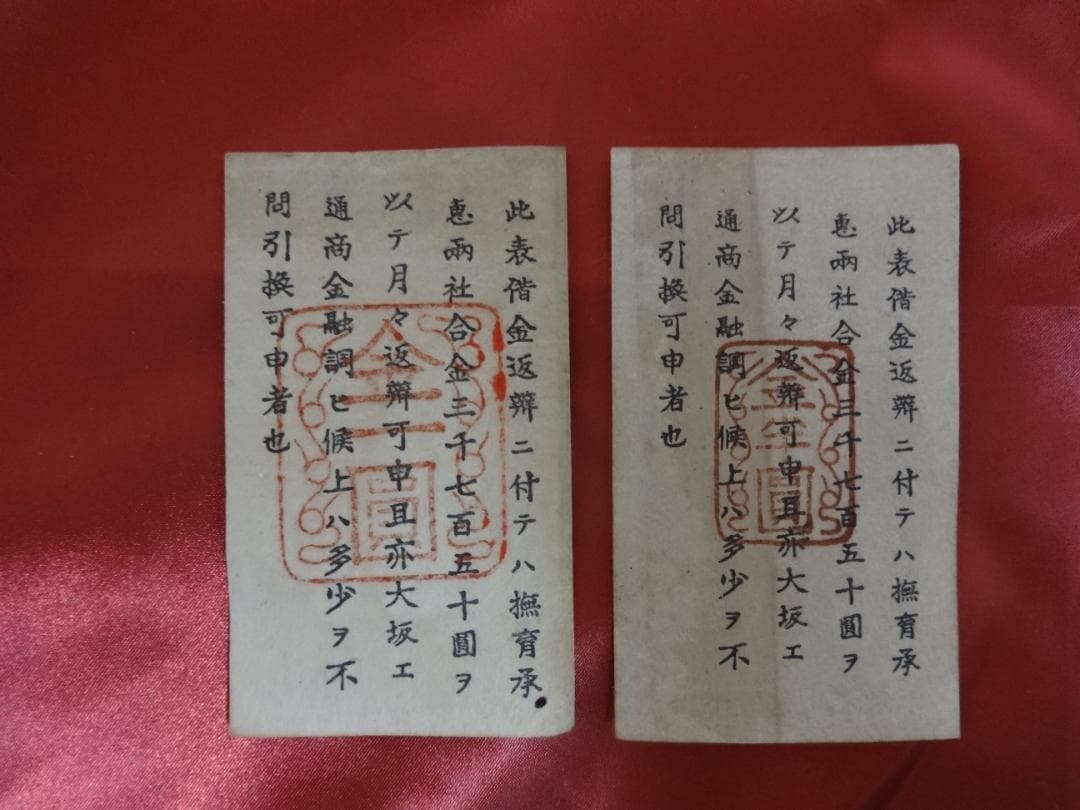 此表偕金返辨ニ付テハ撫育承
惠兩社合金三千七百五十圓ヲ
以テ月々返辨可申且亦大坂エ
通商金融調ヒ候上ハ多少ヲ不
問引換可申者也
金二圓
此表偕金返辨ニ付テハ撫育承
惠兩社合金三千七百五十圓ヲ
以テ月々返辨可申且亦大坂エ
通商金融調ヒ候上ハ多少ヲ不
問引換可申者也
金半圓